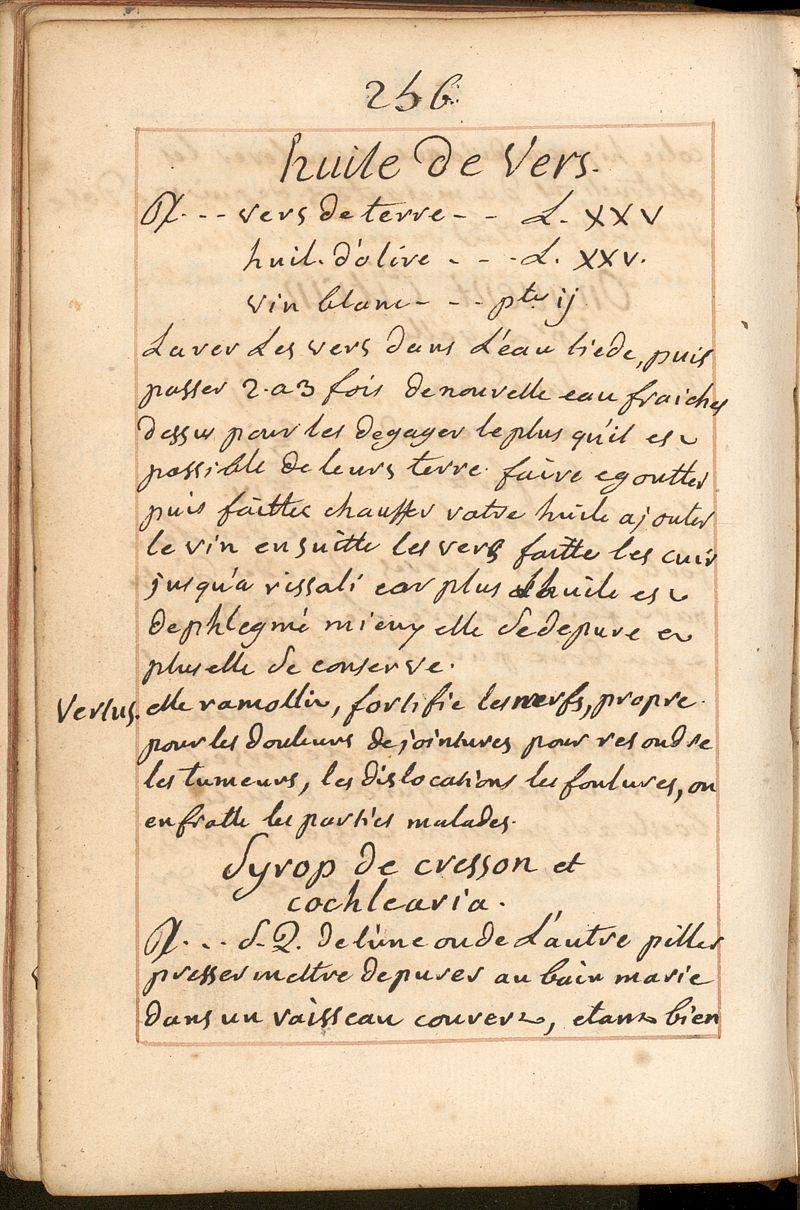 256
huile de Vers.
℞. - - vers de terre - - L. XXV
huil. d'olive - - - L. XXV.
vin blanc - - - ptes ij
Laver Les vers dans L'eau tiede, puis
passer 2. a 3 fois de nouvelle eau fraiches
dessus pour les degager le plus qu'il est
possible de leurs terre. faire egoutter
puis faittes chauffer votre huile ajouter
le vin ensuitte les vers faitte les cuir
jusqu'a rissali car plus Lhuile est
dephlegmé mieux elle se depure et
plus elle se conserve.
Vertus. elle ramollit, fortifie les nerfs, propre
pour les douleurs de jointures pour resoudre
les tumeurs, les dislocations les foulures, on
en frotte les parties malades.
Syrop de cresson et
cochlearia.
℞. . . S. Q. de l'une ou de L'autre piller
presser mettre depurer au bain marie
dans un vaisseau couvert, etant bien